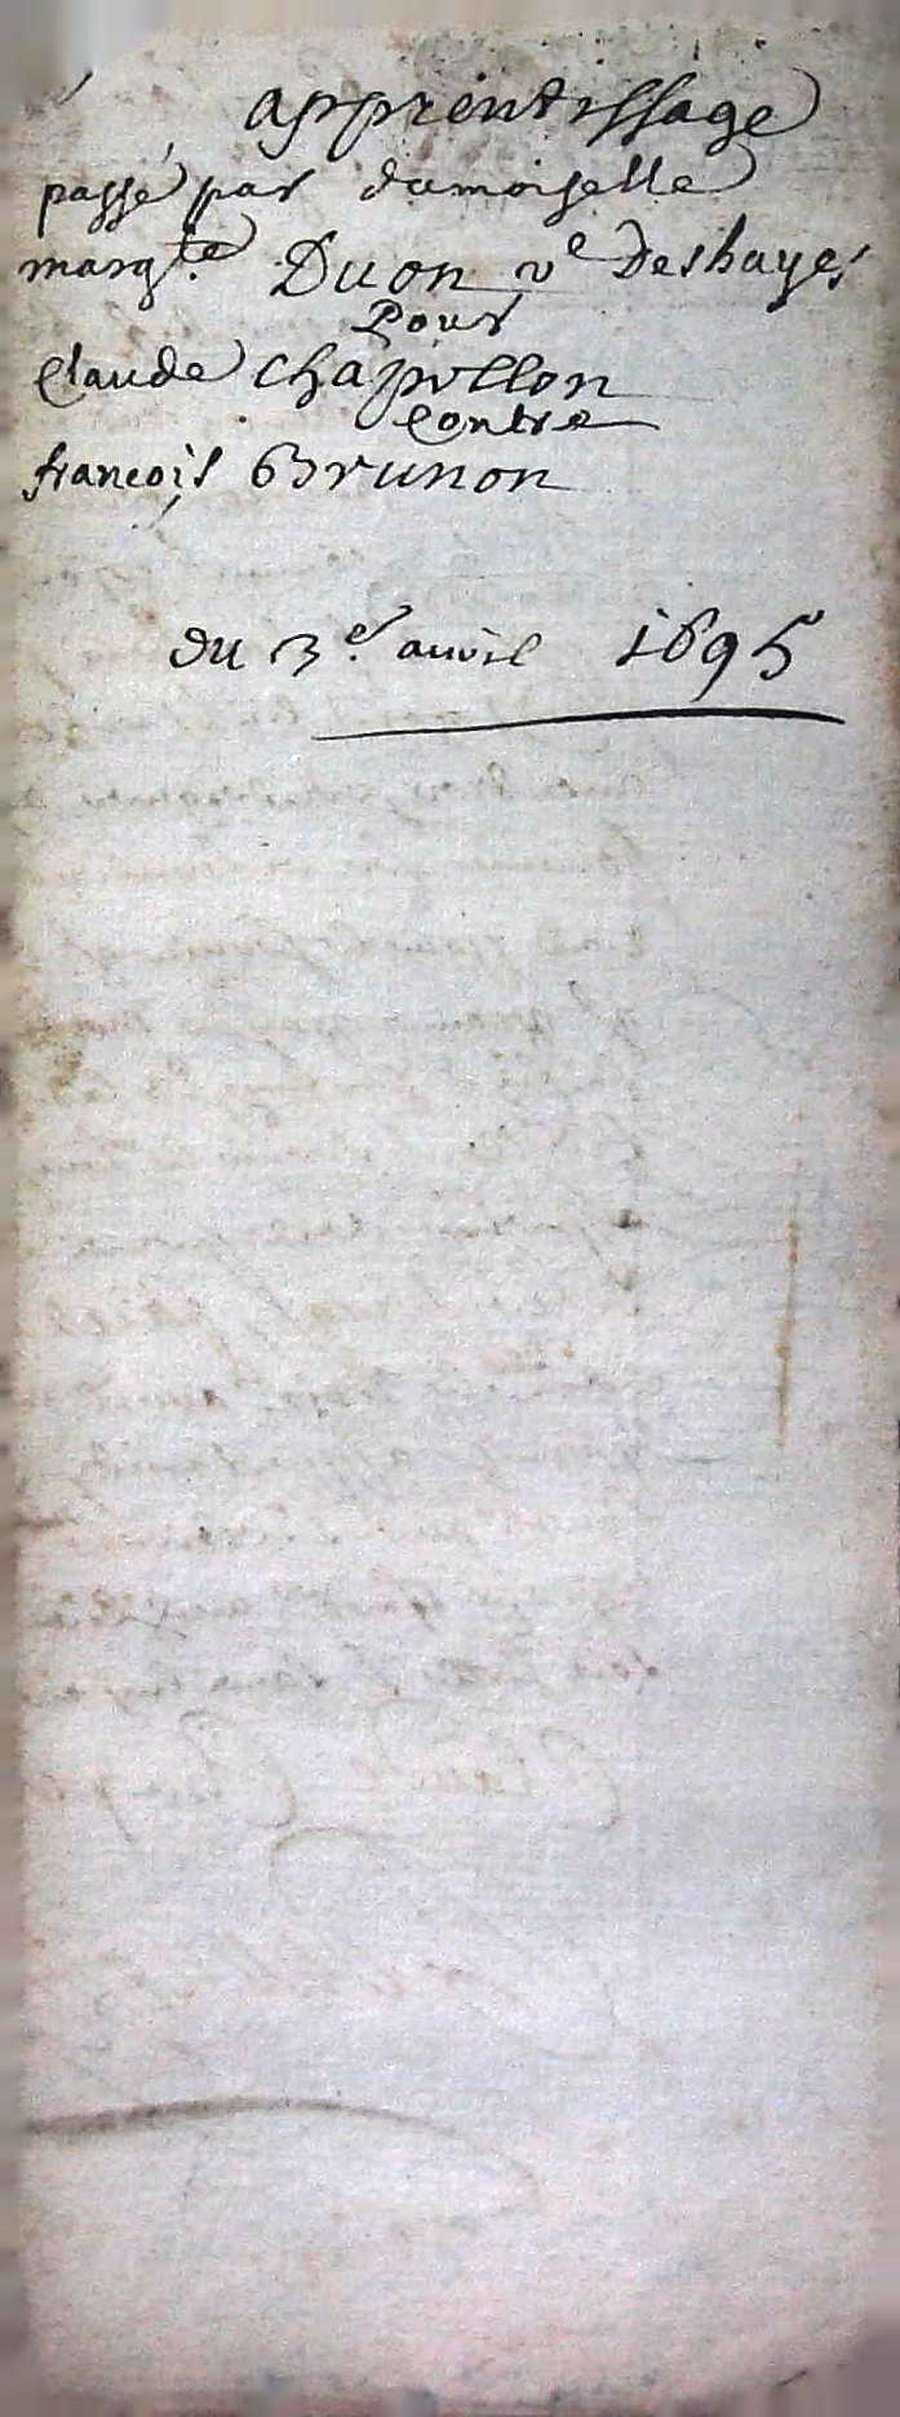 apprentissage
passé par damoiselle
margte Duon ve Deshayes
Pour
Claude Chapollon
Contre
françois Brunon
du 3e. auvil 1695